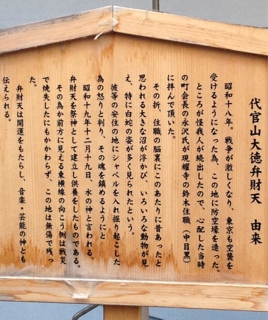 代官山大徳弁財天　由来
昭和十八年。戦争が激しくなり、東京も空襲を
受けるようになった為、この地に防空壕を造った。
ところが怪我人が続出したので、心配した当時
の町会長の永沢氏が現耀寺の鈴木住職（中目黒）
に拝んで頂いた。
その折、住職の脳裏にこのあたりに昔あったと
思われる大きな沼が浮かび、いろいろな動物が見
え、特に白蛇の姿が多く見られたという。
彼等の安住の地にシャベルを入れ掘り起こした
為の怒りと判り、その魂を鎮めるようにと
昭和十九年十二月十九日、水の神と言われる
弁財天を祭神として建立し供養をしたものである。
その為か前方に見える東横線の向こう側は戦災
で焼失したにもかかわらず、この地は無傷で残っ
た。
弁財天は開運をもたらし、音楽・芸能の神とも
伝えられる。